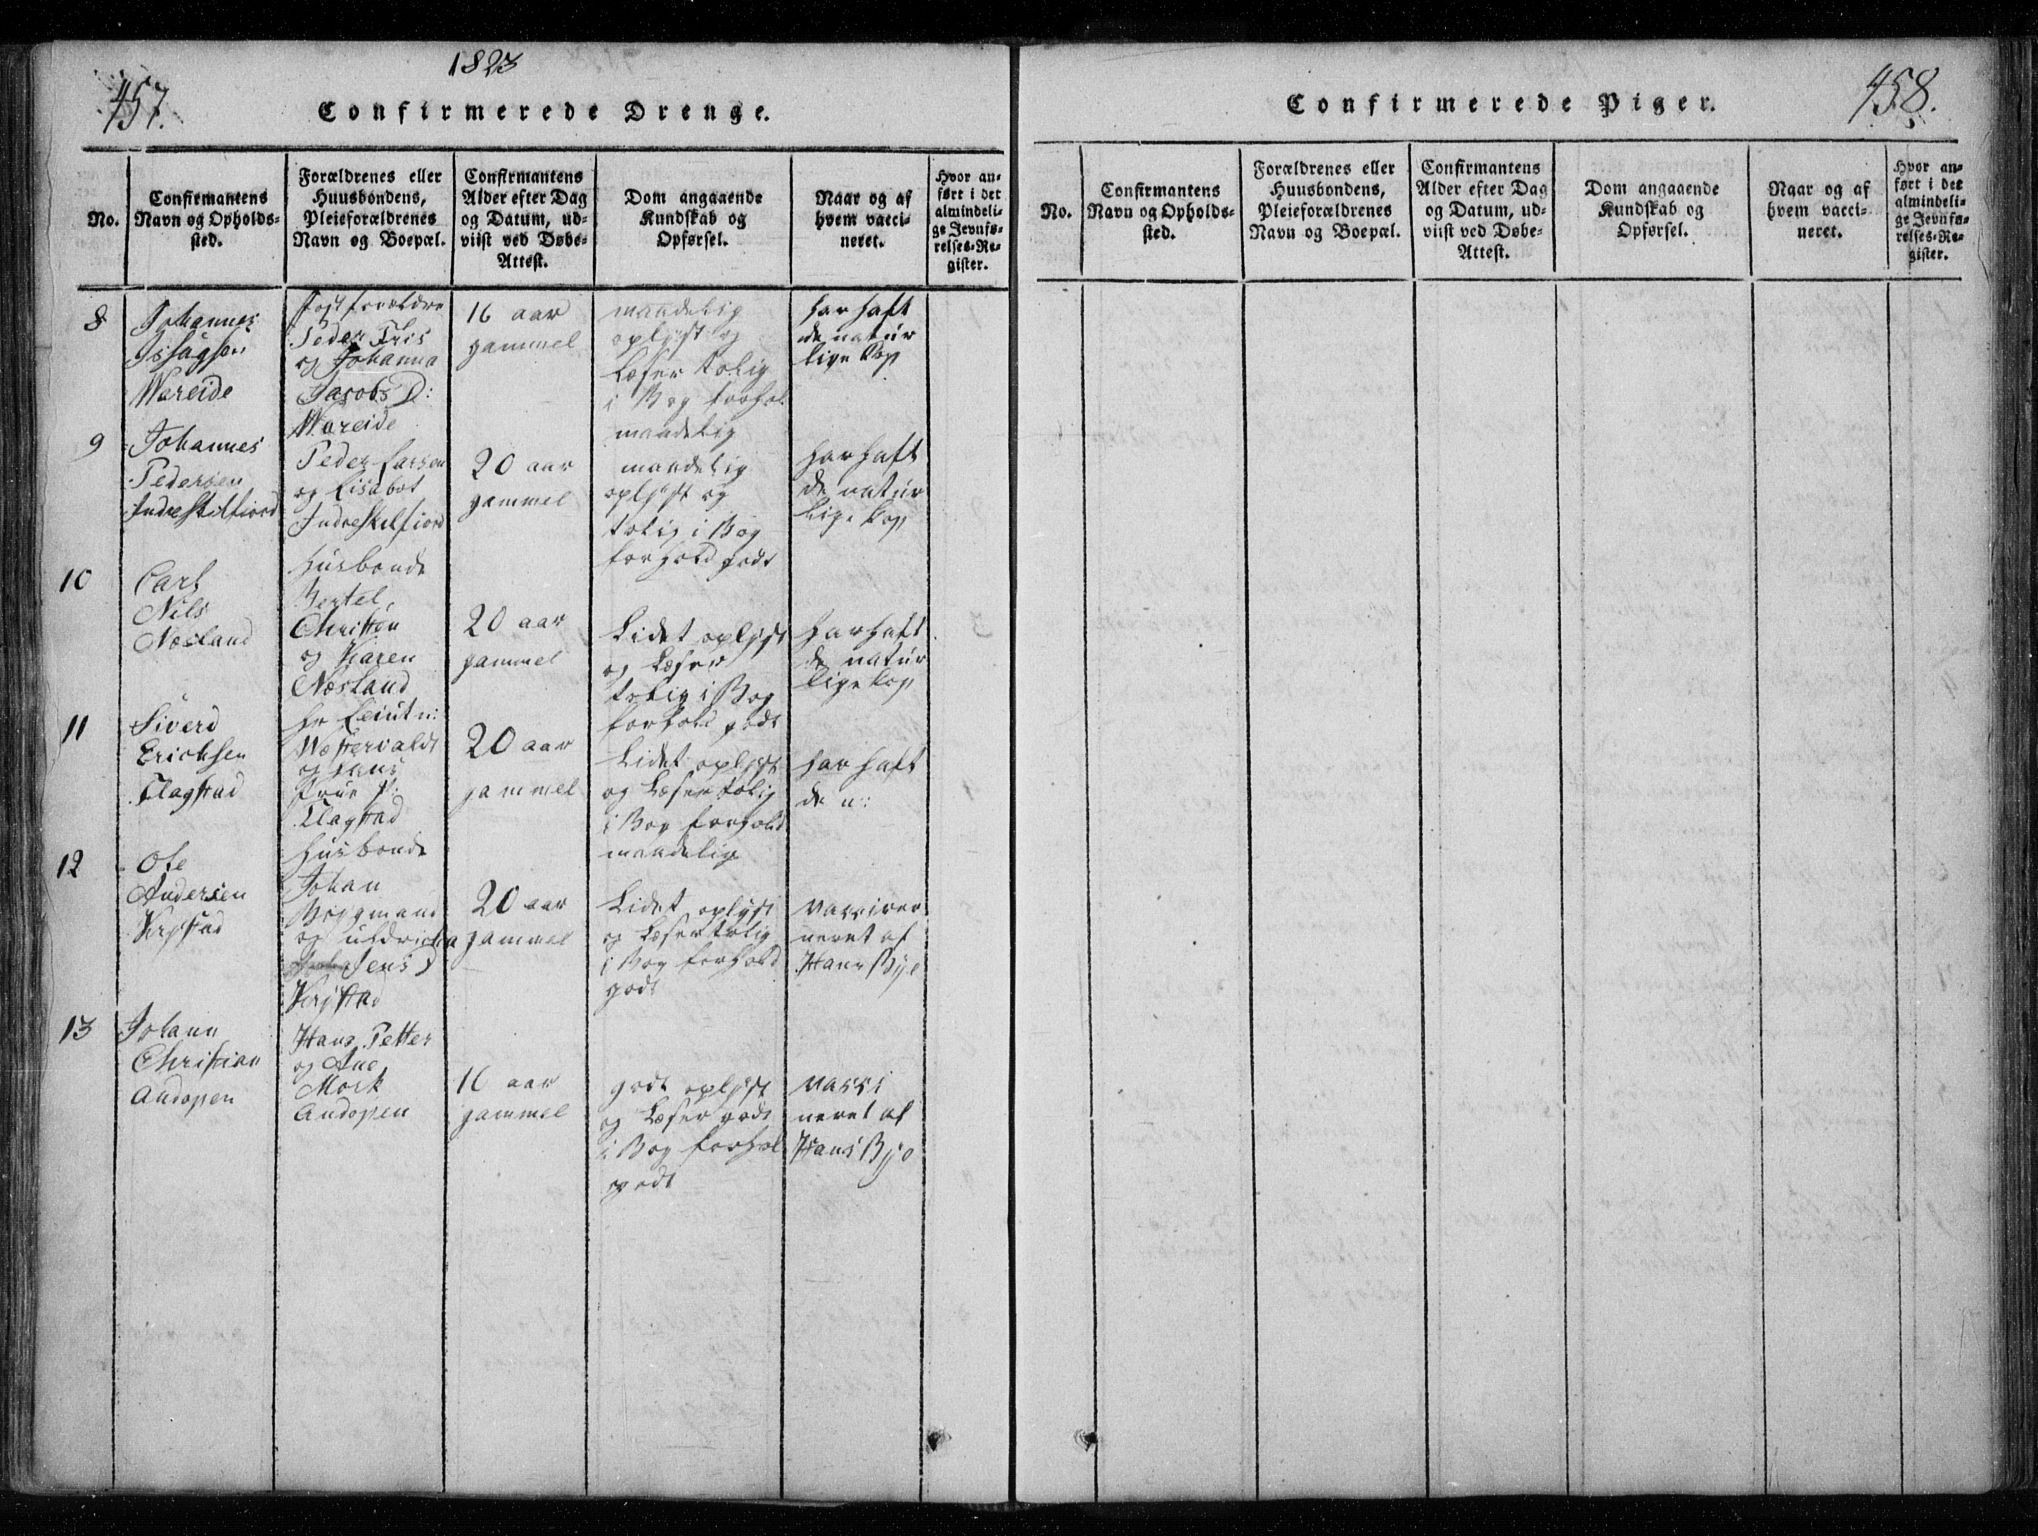 457.
1823
Confirmerede Drenge.
No.
Confirmantens
Navn og Opholds-
sted.
Forældrenes eller
Huusbondens,
Pleieforældrenes
Navn og Boepæl.
Confirmantens
Alder efter Dag
og Datum, ud-
viist ved Døbe-
Attest.
Dom angaaende
Kundskab og
Opførsel.
Naar og af
hvem vacci-
neret.
Hvor an-
ført i det
almindeli-
ge Jevnfø-
relses-Re-
gister.
8
Johannes
Wareide
Peder Friis
og Johanna
Jacobs D:
Wareide
16 aar
gammel
maadelig
oplyst og
Læser tolig
i Bog forhol
maadelig
har haft
de natur
lige Kop
9
Johannes
Pedersen
Indreskelfiord
Peder Larsen
og Lisabet
Indreskelfiord
20 aar
gammel
maadelig
oplyst og
tolig i Bog
forhold godt
har haft
de natur
lige Kop
10
Carl
Nils
Næsland
Husbonde
Bertel
Christen
og Karen
Næsland
20 aar
gammel
Lidet oplyst
og Læser
tolig i Bog
forhold godt
har haft
de natur
lige Kop
11
Siverd
Erichsen
Flagstad
Hr Leiutn:
og hans
Frue P:
Flagstad
20 aar
gammel
Lidet oplyst
og Læser tolig
i Bog forhold
maadelig
har haft
de n:
12
Ole
Andersen
Husbonde
Johan
Byggmand
og Uldricha
Jens D
20 aar
gammel
Lidet oplyst
og Læser tolig
i Bog forhold
godt
neret af
Hans Bye
13
Johann
Christian
Andopen
Hans Petter
og Ane
Mork
Andopen
16 aar
gammel
godt oplyst
og Læser godt
i Bog forhol
godt
vacci
neret af
Hans Bye
458.
Confirmerede Piger.
No.
Confirmantens
Navn og Opholds-
sted.
Forældrenes eller
Huusbondens,
Pleieforældrenes
Navn og Boepæl.
Confirmantens
Alder efter Dag
og Datum, ud-
viist ved Døbe-
Attest.
Dom angaaende
Kundskab og
Opførsel.
Naar og af
hvem vacci-
neret.
Hvor an-
ført i det
almindeli-
ge Jevnfø-
relses-Re-
gister.